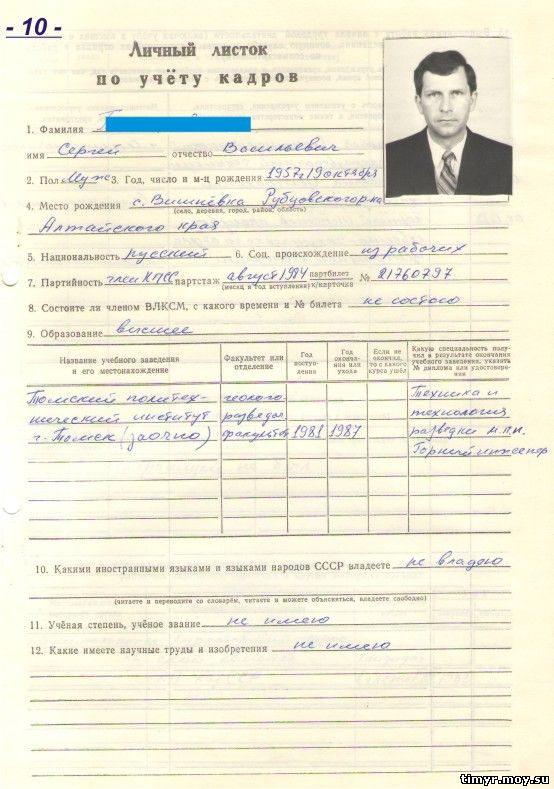 - 10 -
Личный листок
по учёту кадров
1. Фамилия
имя Сергей отчество Васильевич
2. Пол Муж 3. Год, число и м-ц рождения 1957, 19 октября
4. Место рождения с. Вишнёвка Рубцовского р-на
(село, деревня, город, район, область)
Алтайского края
5. Национальность русский 6. Соц. происхождение из рабочих
7. Партийность член КПСС партстаж август 1984 партбилет № 21760797
(месяц и год вступления) к/карточка
8. Состоите ли членом ВЛКСМ, с какого времени и № билета не состою
9. Образование высшее
Название учебного заведения и его местонахождение
Факультет или отделение
Год вступления
Год окончания или ухода
Если не окончил, то с какого курса ушёл
Какую специальность получил в результате окончания учебного заведения, указать № диплома или удостоверения
Томский политех- геолого- Техника и
нический институт разведоч. технология
г. Томск (заочно) факультет 1981 1987 разведки м.п.и.
Горный инженер
10. Какими иностранными языками и языками народов СССР владеете не владею
(читаете и переводите со словарём, читаете и можете объясняться, владеете свободно)
11. Учёная степень, учёное звание не имею
12. Какие имеете научные труды и изобретения не имею
timyr.moy.su